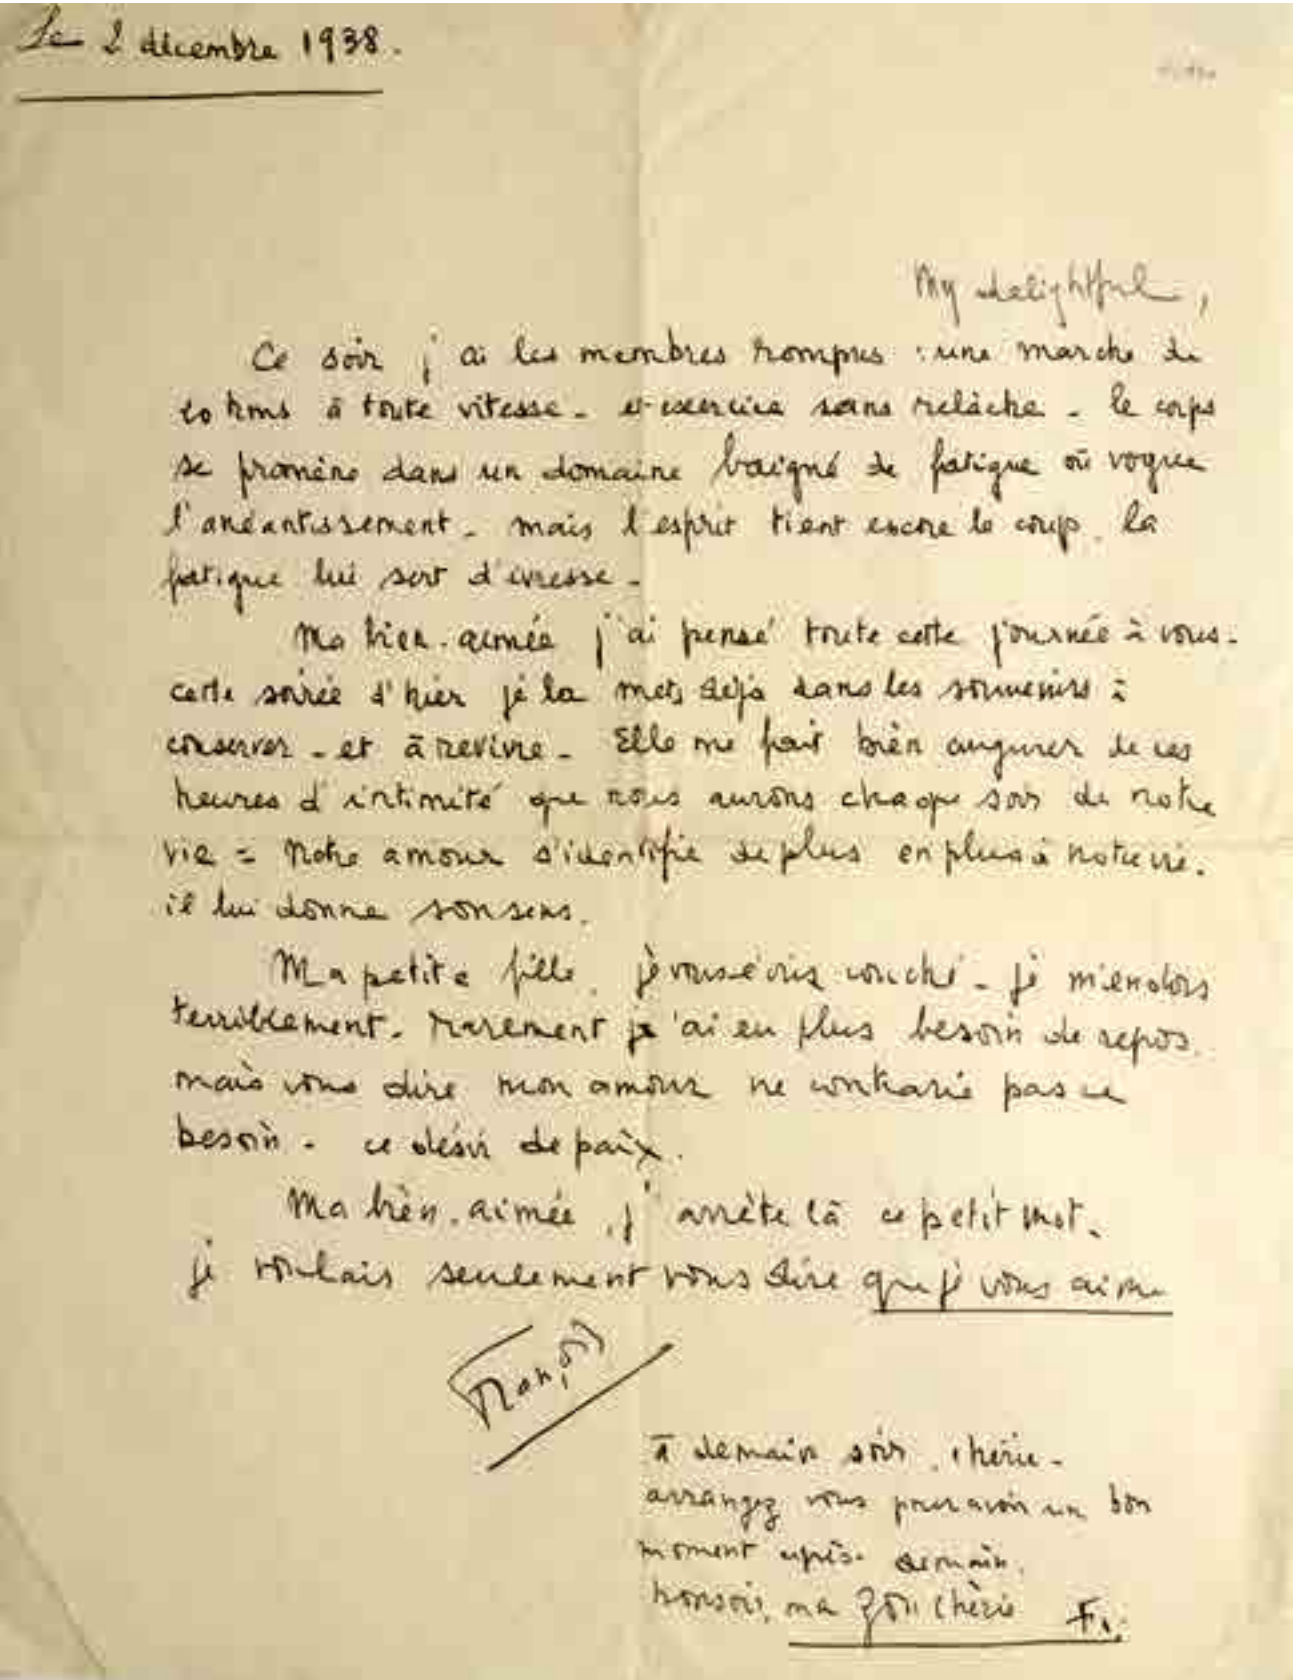 Le 2 décembre 1938.
My delightful,
Ce soir j'ai les membres rompus : une marche de
20 kms à toute vitesse - et exercice sans relâche - le corps
se promène dans un domaine baigné de fatigue où vogue
l'anéantissement - mais l'esprit tient encore le coup. la
fatigue lui sert d'ivresse -
Ma bien-aimée j'ai pensé toute cette journée à vous -
cette soirée d'hier je la mets déjà dans les souvenirs à
conserver - et à revivre - Elle me fait bien augurer de ces
heures d'intimité que nous aurons chaque soir de notre
vie = Notre amour s'identifie de plus en plus à notre vie.
il lui donne son sens.
Ma petite fille, je vous écris couché - je m'endors
terriblement - rarement je j'ai eu plus besoin de repos.
mais vous dire mon amour ne contrarie pas ce
besoin - ce désir de paix.
Ma bien-aimée, j'arrête là ce petit mot.
je voulais seulement vous dire que je vous aime
François
à demain soir, chérie -
arrangez vous pour avoir un bon
moment après-demain.
bonsoir, ma Zou chérie F.